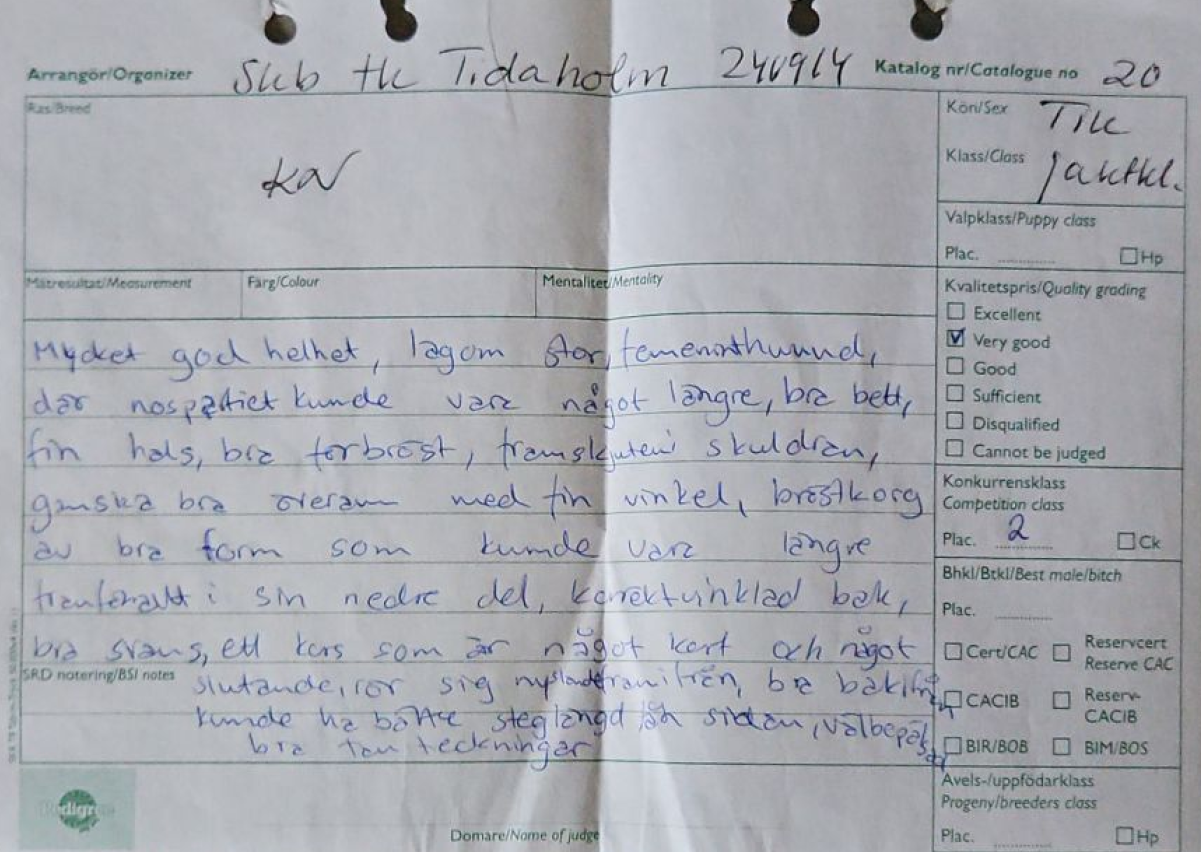 Arrangör/Organizer Skb tk Tidaholm 240914 Katalog nr/Catalogue no 20
Ras/Breed
KN
Kön/Sex Tik
Klass/Class Jaktkl.
Valpklass/Puppy class
Plac. Hp
Mätresultat/Measurement Färg/Colour Mentalitet/Mentality
Kvalitetspris/Quality grading
Excellent
Very good
Good
Sufficient
Disqualified
Cannot be judged
Mycket god helhet, lagom stor, hund,
där kunde vara något längre, bra bett,
fin hals, bra förbröst, skuldran,
ganska bra överarm med fin vinkel, bröstkorg
av bra form som kunde vara längre
i sin nedre del, korrekt vinklad bak,
bra svans, ett kors som är något kort och något
slutande, rör sig bra bakifrån,
kunde ha bättre steglängd från sidan, välbepälsad
bra tan teckningar
SRD notering/BSI notes
Konkurrensklass
Competition class
Plac. 2 Ck
Bhkl/Btkl/Best male/bitch
Plac.
Cert/CAC Reservcert
Reserve CAC
CACIB Reserv-
CACIB
BIR/BOB BIM/BOS
Avels-/uppfödarklass
Progeny/breeders class
Plac. Hp
Domare/Name of judge